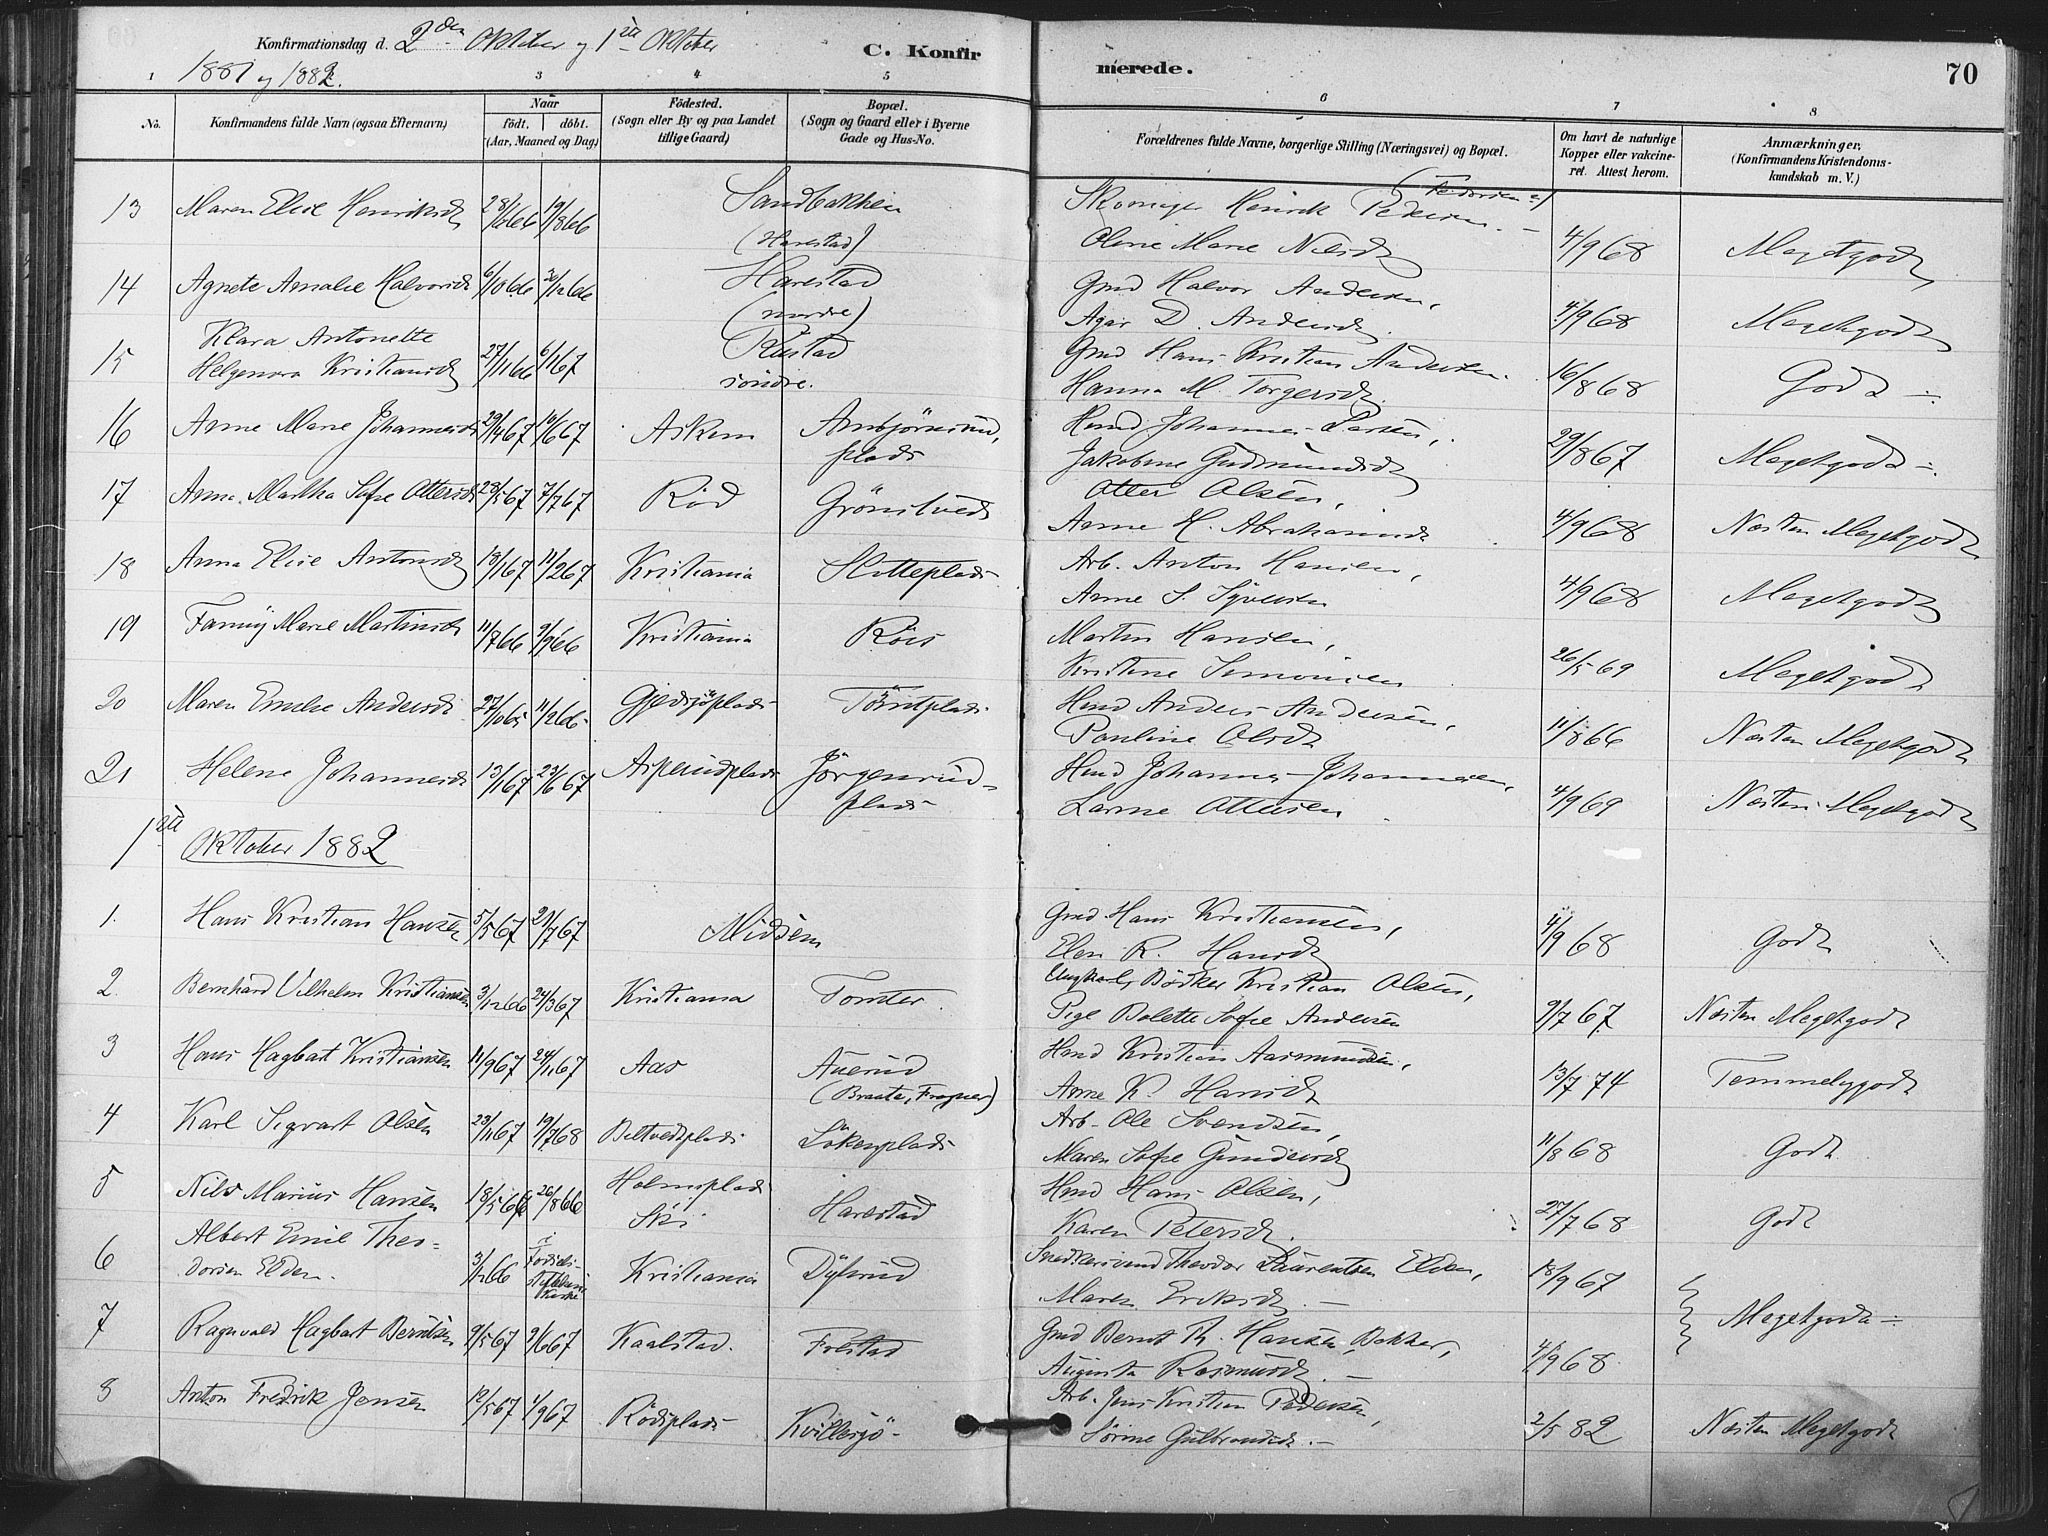 Konfirmationsdag d. 2den Oktober og 1ste Oktober
1881 og 1882.
C. Konfirmerede.
70
1 3 4 5 6 7 8
No.
Konfirmandens fulde Navn (ogsaa Efternavn)
Naar
födt. döbt.
(Aar, Maaned og Dag)
Födested.
(Sogn eller By og paa Landet
tillige Gaard)
Bopæl.
(Sogn og Gaard eller i Byerne
Gade og Hus-No.
Forældrenes fulde Navne, borgerlige Stilling (Næringsvei) og Bopæl.
Om havt de naturlige
Kopper eller vakcine-
ret. Attest herom.
Anmærkninger,
(Konfirmandens Kristendoms-
kundskab m. V.)
13 Maren Elise Henriksd 19/8 66 Sandbakken Henrik Pedersen
(Harestad) Oline Marie Nilsd 4/9 68 Megetgodt
14 Agnete Amalie Halvorsd 6/10 66 30/12 66 Harestad Grd Halvor Andersen,
(nordre) Agar D. Andersd. 4/9 68 Megetgodt
15 Klara Antonette Grd Hans Kristian Andersen.
Helgenora Kristiansd 27/11 66 6/1 67 söndre. Hanna M. Torgersd. 16/8 68 Godt
16 Anne Marie Johannesd 29/4 67 10/6 67 Askem Ambjörnsrud, Husmd Johannes Larsen,
plads Jakobine Gudmundsd 29/8 67 Megetgodt
17 Anna Martha Sofie Ottersd 28/5 67 7/7 67 Röd Grönslved Otter Olsen,
Anne H. Abrahamsd 4/9 68 Næsten Megetgodt
18 Anna Elise Antonsd 13/1 67 11/2 67 Kristiania Slotteplads Arb. Anton Hansen,
Anne S. Syversen 4/9 68 Megetgodt
19 Fanny Marie Martinsd 11/7 66 9/9 66 Kristiania Röis Martin Hansen,
Kristine Simonsen 26/5 69 Megetgodt
20 Maren Emilie Andersd. 27/10 65 11/2 66 Gjedsjöplads Tömtplads Hmd Anders Andersen,
Pauline Olsd 11/8 66 Næsten Megetgodt
21 Helene Johannesd 13/1 67 23/6 67 Asperudplads Jörgensrud- Hmd Johannes Johannesen,
plads Larine Ottersen 4/9 69 Næsten Megetgodt
1ste Oktober 1882
1. Hans Kristian Hansen 5/5 67 21/7 67 Midsem Grd Hans Kristiansen,
Elen R. Hansd 4/9 68 Godt
2. Bernhard Vilhelm Kristiansen 3/12 66 24/3 67 Kristiania Tomter Ungkarl, Bödker Kristian Olsen,
Pige Bolette Sofie Andersen 9/7 67 Næsten Megetgodt
3 Hans Hagbart Kristiansen 11/9 67 24/11 67 Aas Auerud Hmd Kristian Aasmundsen,
(Braate, Frogner) Anne K. Hansd 13/7 74 Temmeliggodt
4 Karl Sigvart Olsen 23/11 67 19/7 68 Bæltvedtplads Lökenplads Arb. Ole Svendsen,
Maren Sofie Gundersd 11/8 68 Godt
5 Nils Marius Hansen 18/5 66 26/8 66 Holmsplads Harestad Hmd Hans Olsen,
Ski Karen Petersd. 27/7 68 Godt
6 Albert Emil Theo-
dorsen Elden. 3/12 66 i Kirke Kristiania Dylerud Snedkersvend Theodor Laurentsen Elden,
Maren Eriksd. 18/9 67
7 Ragnvald Hagbart Berntsen 9/5 67 9/6 67 Kaalstad. Frestad Grd Bernt Th. Hansen Bakker,
Augusta Rasmusd. 4/9 68. Megetgodt
8 Anton Fredrik Jensen 12/5 67 1/9 67 Rödsplads Kvillesjö Arb. Jens Kristian Pedersen,
Sörine Gulbrandsd. 2/5 82 Næsten Megetgodt